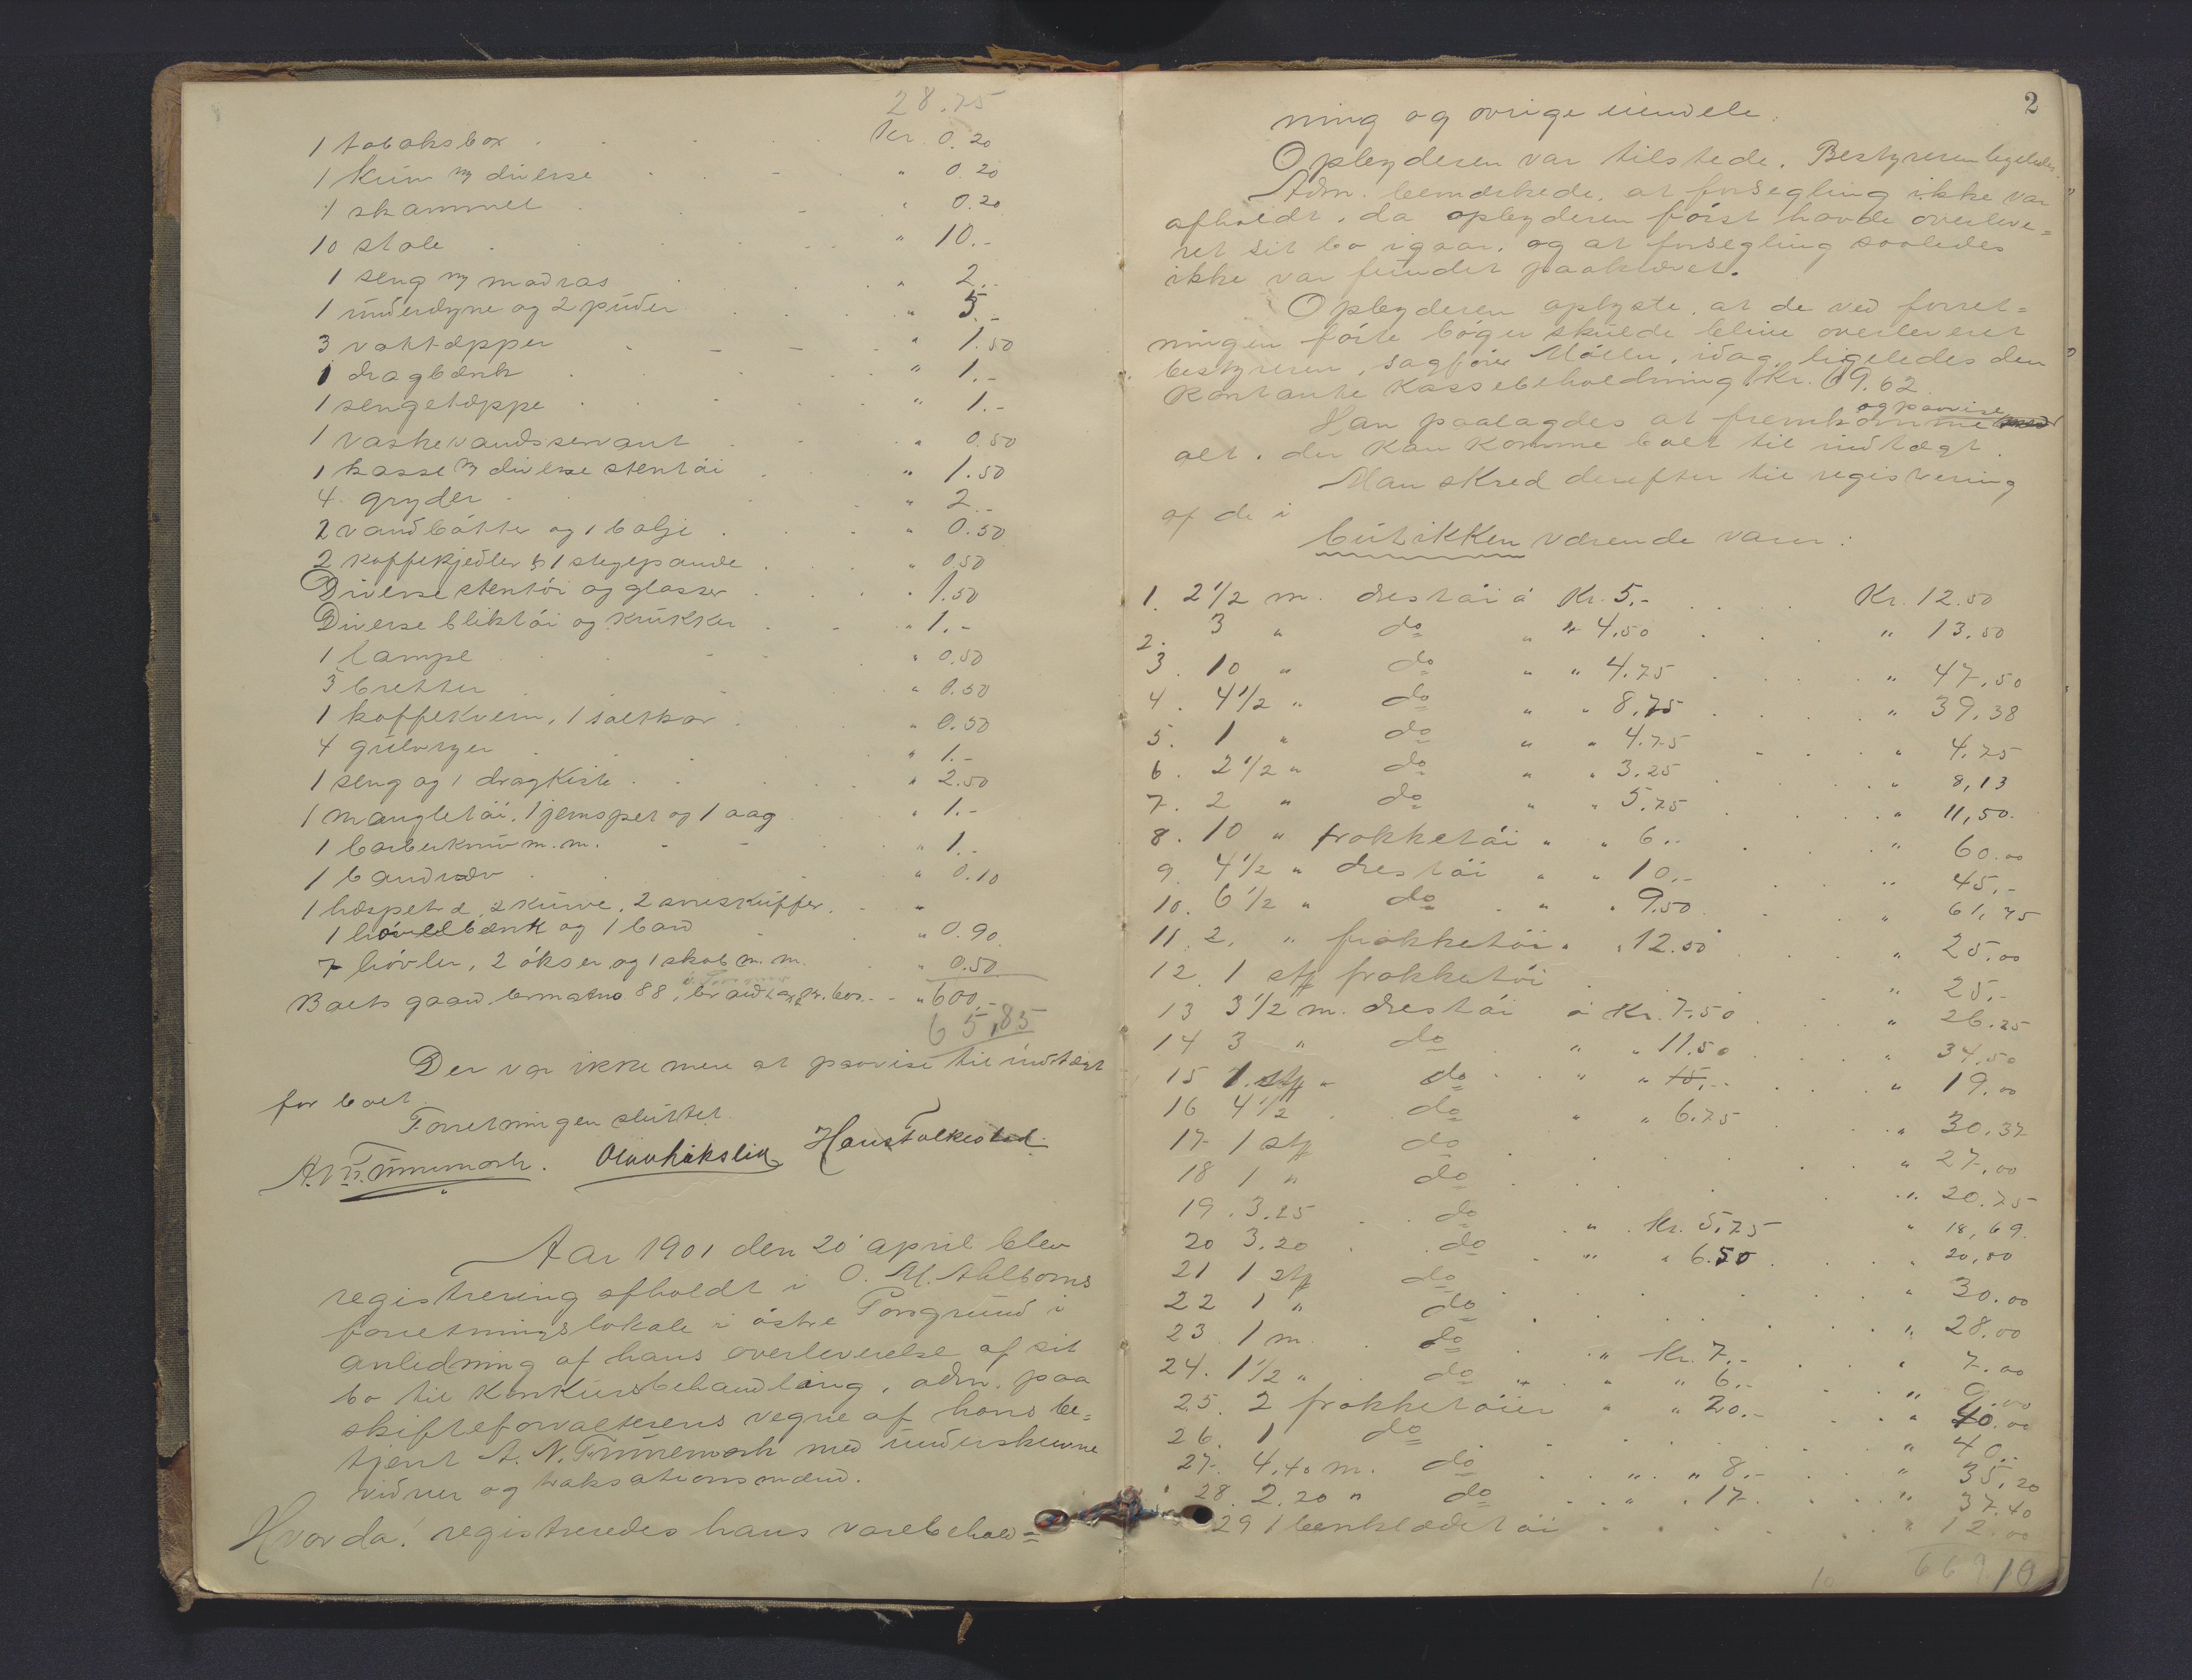 28.75
1 tobaksbox . . . . . Kr. 0.20
1 kurv m/ diverse . . . " 0.20
1 skammel . . . " 0.20
10 stole . . . . " 10.-
1 seng m/ madras . . . " 2.-
1 underdyne og 2 puder . . . " 5.-
3 vattæpper . . . " 1.50
1 dragbænk . . . . " 1.-
1 sengetæppe . . . . " 1.-
1 vaskevandsservant . . . " 0.50
1 kasse m/ diverse stentöi . . " 1.50
4 gryder . . . . " 2.-
2 vandbötter og 1 balje . . . " 0.50
2 kaffekjedler og 1 stegepande . . . " 0.50
Diverse stentöi og glasser . . . " 1.50
Diverse bliktöi og krukker . . " 1.-
1 lampe . . . . " 0.50
3 bretter . . . . " 0.50
1 kaffekvern, 1 saltkar . . . " 0.50
4 gulvryer . . . " 1.-
1 seng og 1 dragkiste . . . " 2.50
1 mangletöi, 1 jernspet og 1 aag . . " 1.-
1 barberkniv m.m. . . . " 1.-
1 . . . " 0.10
1 hæspetræ, 2 kurve, 2 sneskuffer. . "
1 hövelbænk og 1 baad . . " 0.90
7 hövler, 2 økser og 1 skab m.m. . " 0.50
Boets gaard, brmatno. 88, brandtax. kr. 600.- - " 600.-
65,85
Der var ikke mere at paavise til indtægt
for boet.
Forretningen sluttet.
A. N. Tømmernosk. Hans Folkestad.
Aar 1901 den 20 april blev
registrering afholdt i O. M. Ahlboms
forretningslokale i östre Porsgrund i
anledning af hans overleverelse af sit
bo til konkursbehandling, adm. paa
skifteforvalterens vegne af hans be=
tjent A. N. med underskrevne
vidner og taksationsmænd.
Hvorda! registreredes hans varebehold=
2
ning og övrige eiendele.
Opbyderen var tilstede. Bestyreren ligeledes.
Adm. bemærkede, at forsegling ikke var
afholdt, da opbyderen först havde overleve=
ret sit bo igaar, og at forsegling saaledes
ikke var fundet paakrævet.
Opbyderen oplyste, at de ved forret=
ningen förte böger skulde blive overleveret
bestyreren, sagförer Möller, idag, ligeledes den
kontante kassebeholdning, kr. 69.62
og paavise
Han paalagdes at fremkomme med
alt, der kan komme boet til indtægt.
Man skred derefter til registrering
af de i
butikken værende varer:
1. 2 1/2 m. drestöi á Kr. 5.- . . . . Kr. 12.50
2. 3 " do " " 4.50 . . . " 13.50
3. 10 " do " " 4.75 . . . " 47.50
4. 4 1/2 " do " " 8.75 . . . " 39.38
5. 1 " do " " 4.75 - . . " 4.75
6. 2 1/2 " do " " 3.25 . . . " 8,13
7. 2 " do " " 5.75 . . . " 11,50.
8. 10 " frakketöi " " 6.- . . " 60.00
9. 4 1/2 " drestöi " " 10.- . . " 45.-
10. 6 1/2 " do " " 9.50 . . " 61,75
11. 2. " frakketöi " " 12.50 . . . " 25.00
12. 1 stf frakketöi . . . " 25.-
13 3 1/2 m. drestöi á Kr. 7.50 . . " 26.25
14 3 " do " " 11.50 . . . " 34.50
15 1 stf " do . " " 15.- . . . " 19.00
16 4 1/2 . do " " 6.75 . . . " 30.37
17 1 stf do . . . . " 27.00
18 1 " do . . . . " 20.75
19. 3.25 . do . " Kr. 5.75 " 18,69.
20 3.20 . do . " " 6.50 . . . " 20,80
21 1 stf do . . . . " 30.00
22 1 " do . . . . " 28.00
23 1 m. . do . " Kr. 7.- . . " 7.00
24. 1 1/2 " . do " " " 6.- . . " 9.00
25. 2 frakketöier " " 20.- . . " 40.00
26. 1 do . . . . " 40.-
27. 4.40 m. do . . " " 8.- . . " 35,20
28. 2.20 " do . . " . 17.- . . " 37.40
29 1 benklædetöi . . . . " 12.00
10 10